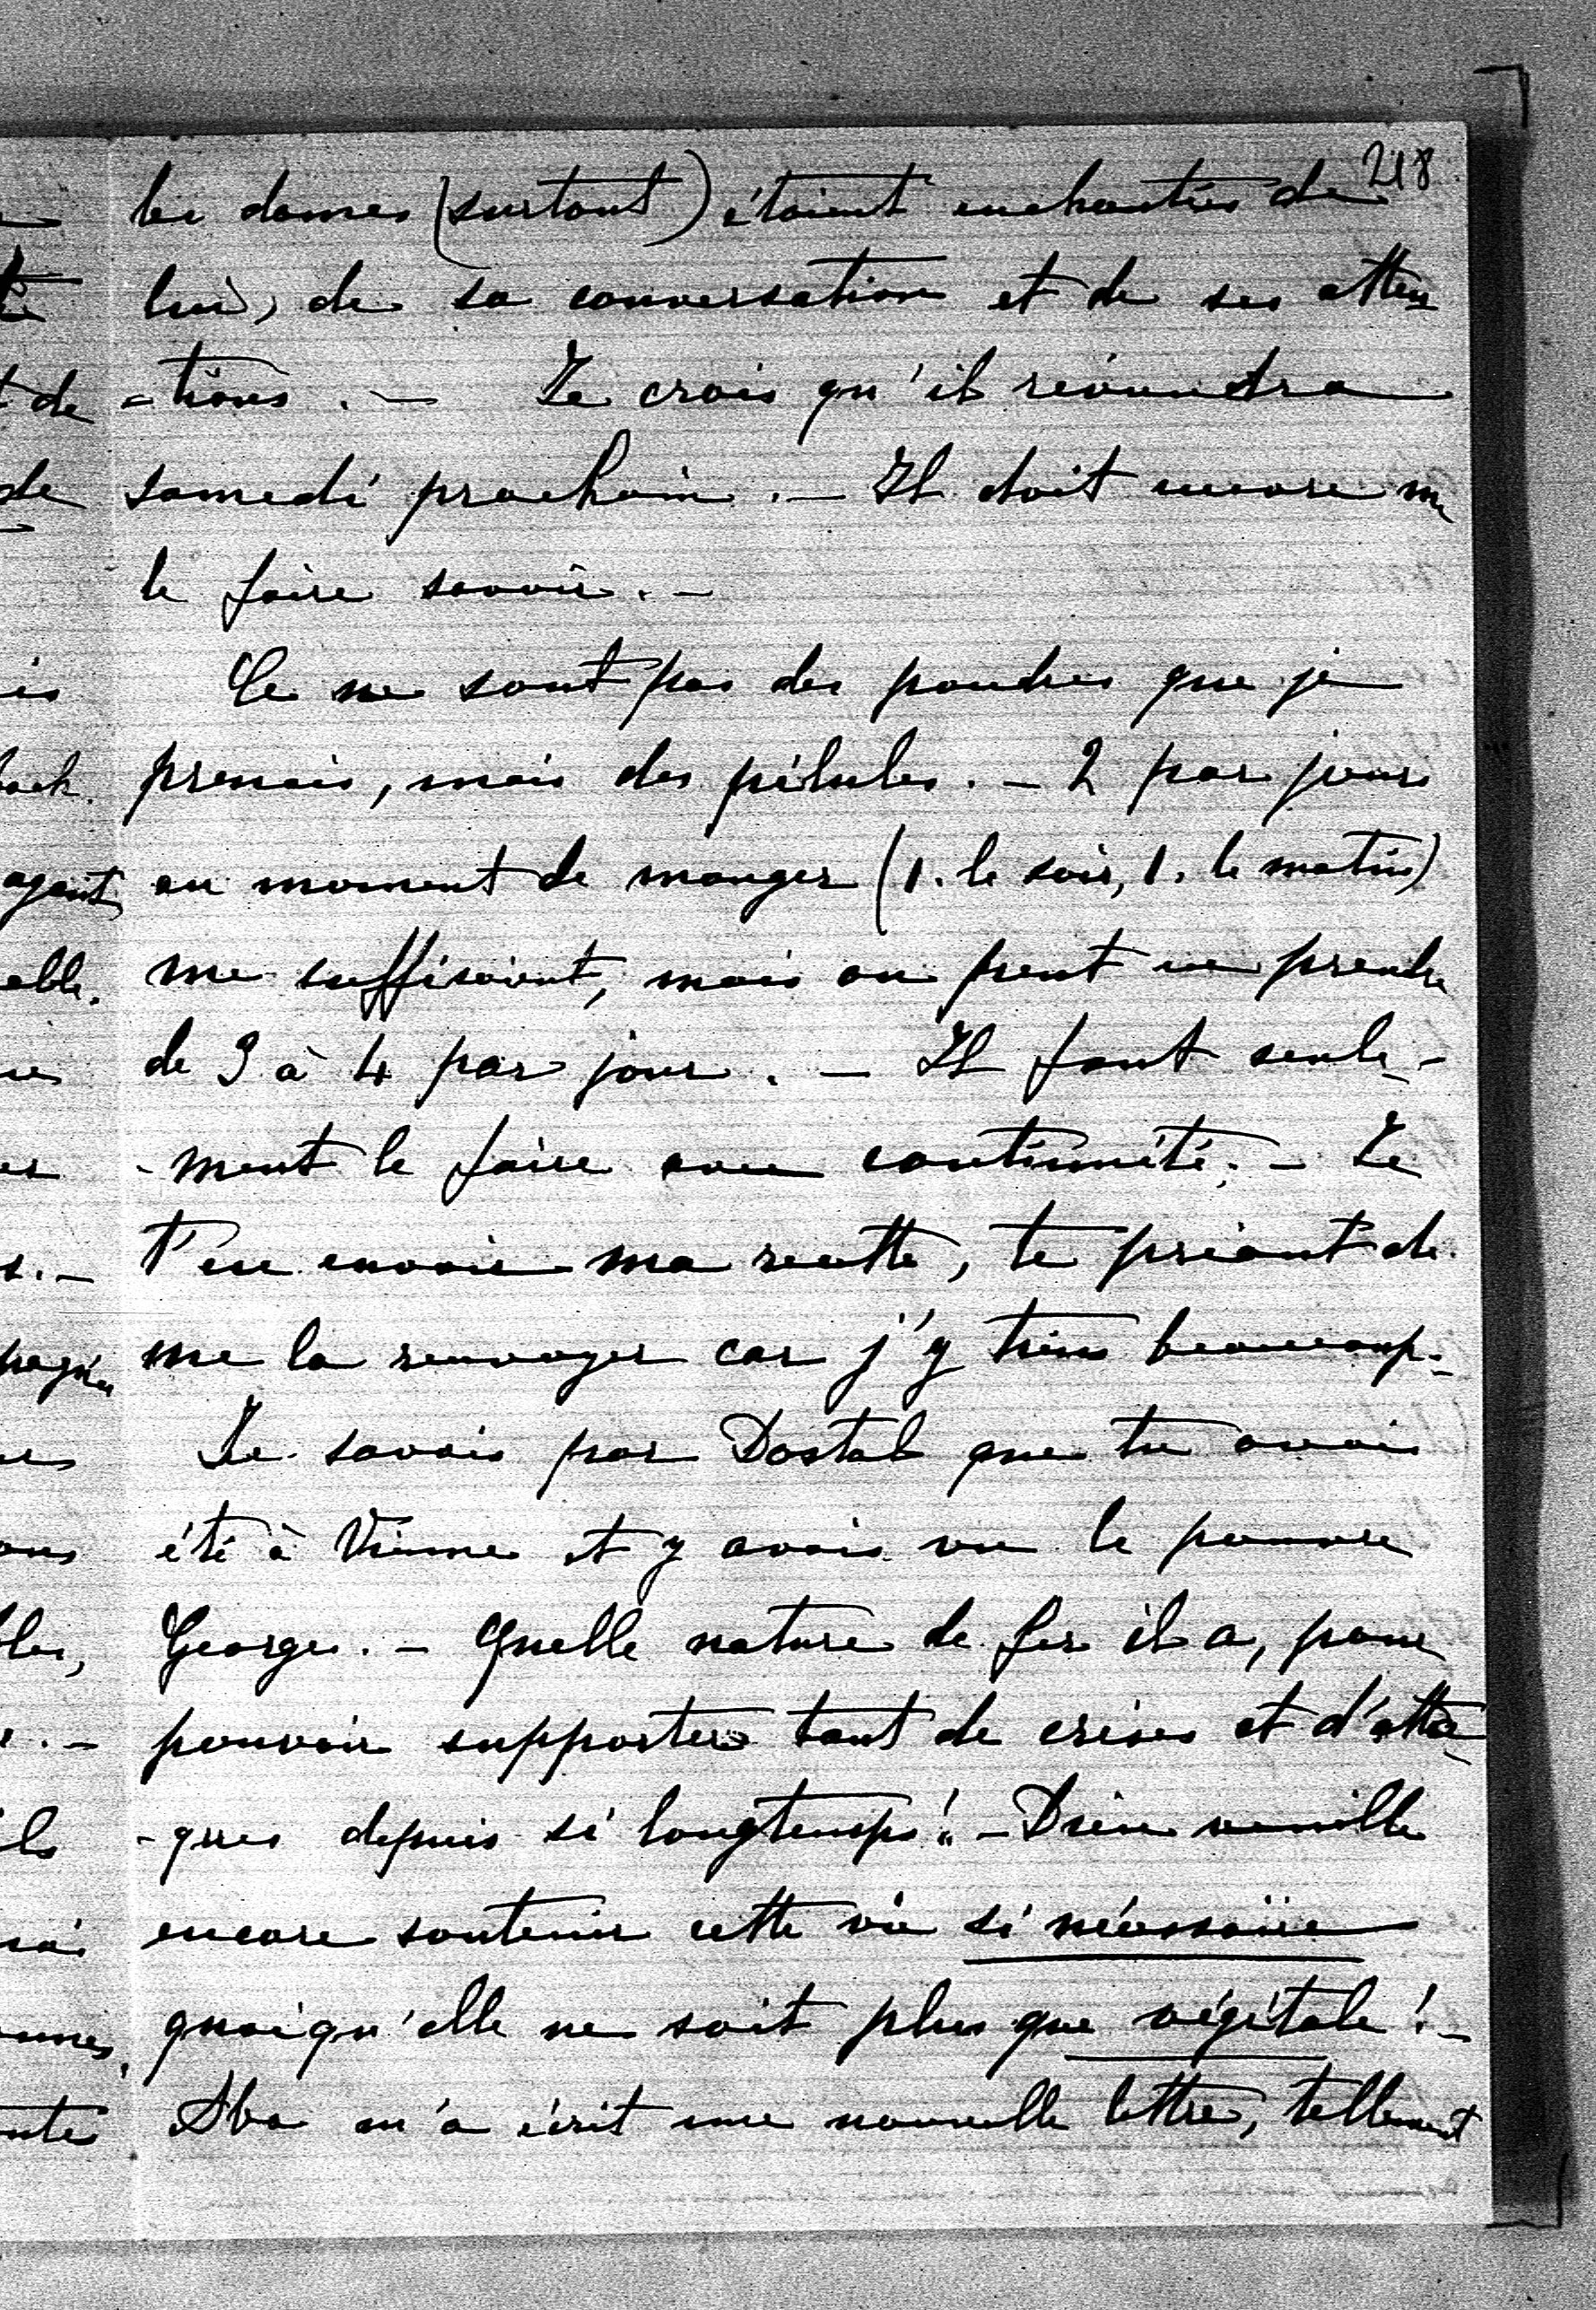 218
les dames (surtout) étaient enchantées de
lui, de sa conversation et de ses atten
-tions. - Je crois qu'il reviendra
samedi prochain. - Il doit encore me
le faire savoir. -
Ce ne sont pas des poudres que je
prenais, mais des pilules. - 2 par jours
au moment de manger (1. le soir, 1. le matin)
me suffisaient, mais on peut en prendre
de 3 à 4 par jour. - Il faut seule-
-ment le faire avec continuité. - Je
t'en envoie ma recette, te priant de
me la renvoyer car j'y tiens beaucoup. -
Je savais par Dostal que tu avais
été à Vienne et y avais vu le pauvre
Georges. - Quelle nature de fer il a, pour
pouvoir supporter tant de crises et d'atta
-ques depuis si longtemps! - Dieu veuille
encore soutenir cette vie si nécessaire
quoiqu'elle ne soit plus que végétale! -
m'a écrit une nouvelle lettre, tellement